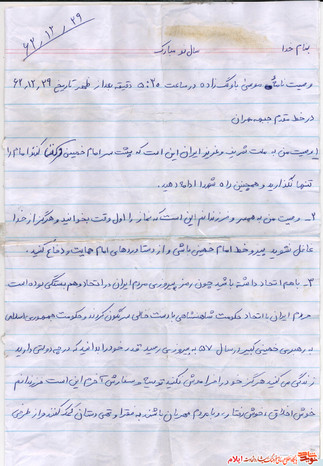 ۶۲,۱۲,۲۹
بنام خدا سال نو مبارک
وصیت نامه موسی باونگ زاده در ساعت ۵:۲۵ دقیقه بعد از ظهر تاریخ ۶۲,۱۲,۲۹
در خط مقدم جبهه مهران
۱ وصیت من به ملت شریف و عزیز ایران این است که پشت سر امام خمینی حرکت کنند و امام را
تنها نگذارید و همچنین راه شهدا ادامه دهید.
۲- وصیت من به همسر و فرزندانم این است که نماز را اول وقت بخوانید و هرگز از خدا
غافل نشوید پیرو خط امام خمینی باشید و از دستاوردهای امام حمایت و دفاع کنید.
۳- با هم اتحاد داشته باشید چون رمز پیروزی مردم ایران در اتحاد و هم بستگی بوده است
مردم ایران با اتحاد حکومت شاهنشاهی با دست خالی سرنگون کردند و حکومت جمهوری اسلامی
به رهبری خمینی کبیر در سال ۵۷ به پیروزی رسید قدر خود را بدانید که در چه دورانی دارید
زندگی می کنید هرگز خود را فراموش نکنید توصیه و سفارش آخرم این است فرزندانم
خوش اخلاق، خوش رفتار، و با مردم مهربان باشند به فقرا و تهی دستان کمک کنند و از طرفی
ایلام